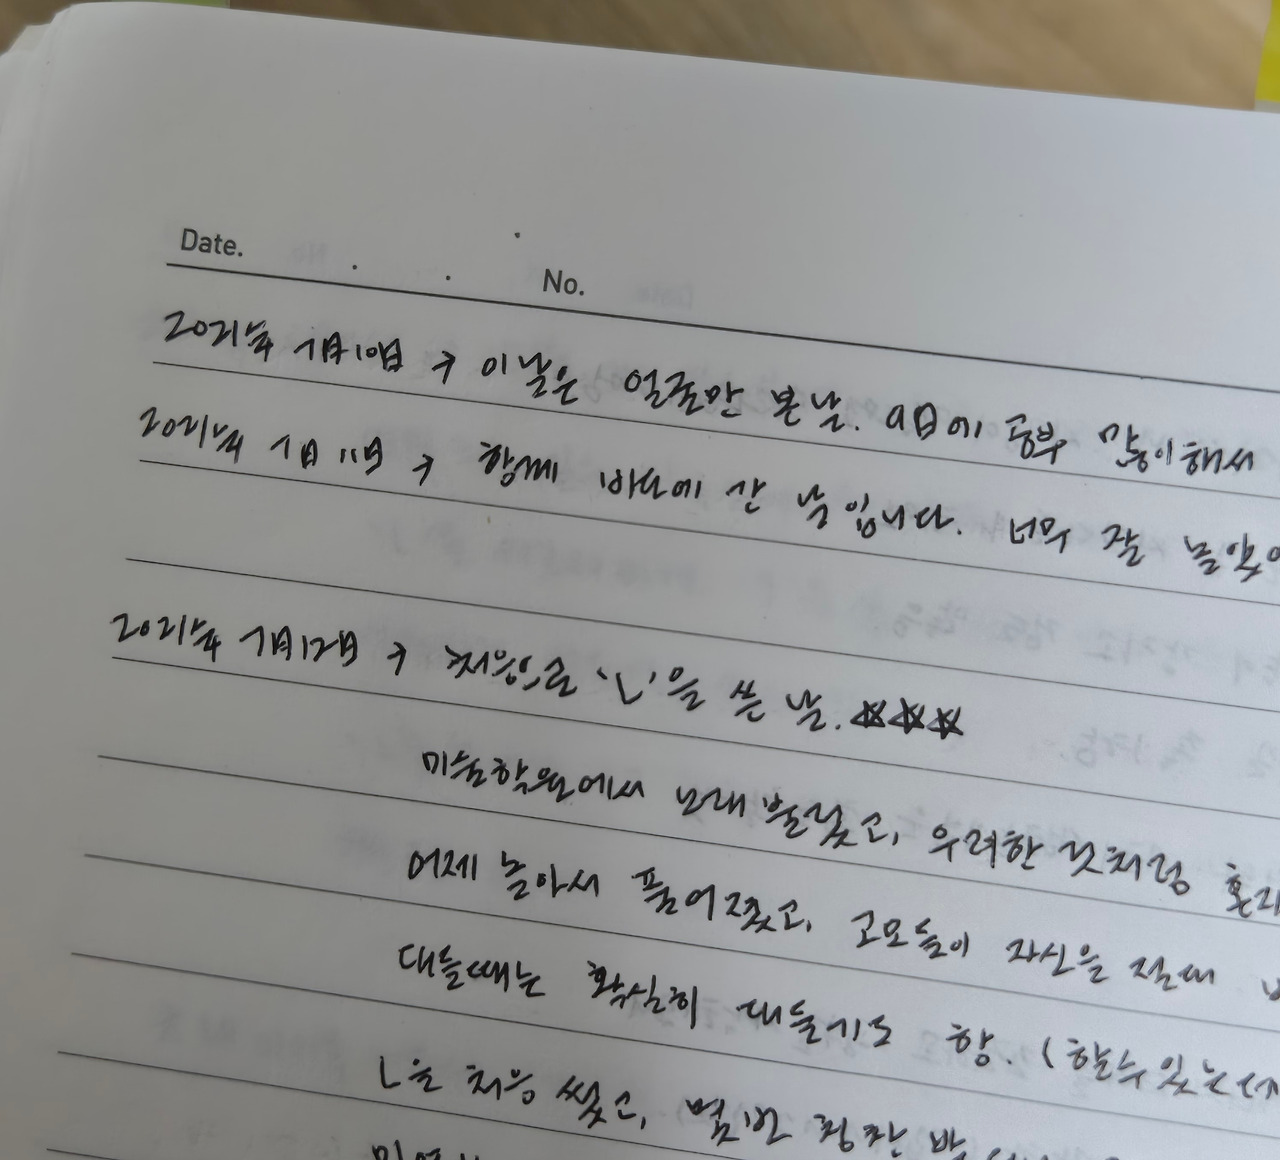 Date. . . No.
2021년 7월 10일 → 이날은 얼굴만 본 날. 9日에 공부 많이해서
2021년 7月 11日 → 함께 바다에 간 날입니다. 너무 잘 놀았
2021년 7月 12日 → 처음으로 'L'을 쓴 날. ☆☆☆
미술학원에서 노래 불렀고, 우려한 것처럼
어제 놀아서 풀어졌고, 고모들이 자신을 절대
대들때는 확실히 대들기도 함. (할수있는
L을 처음 썼고, 몇번 칭찬